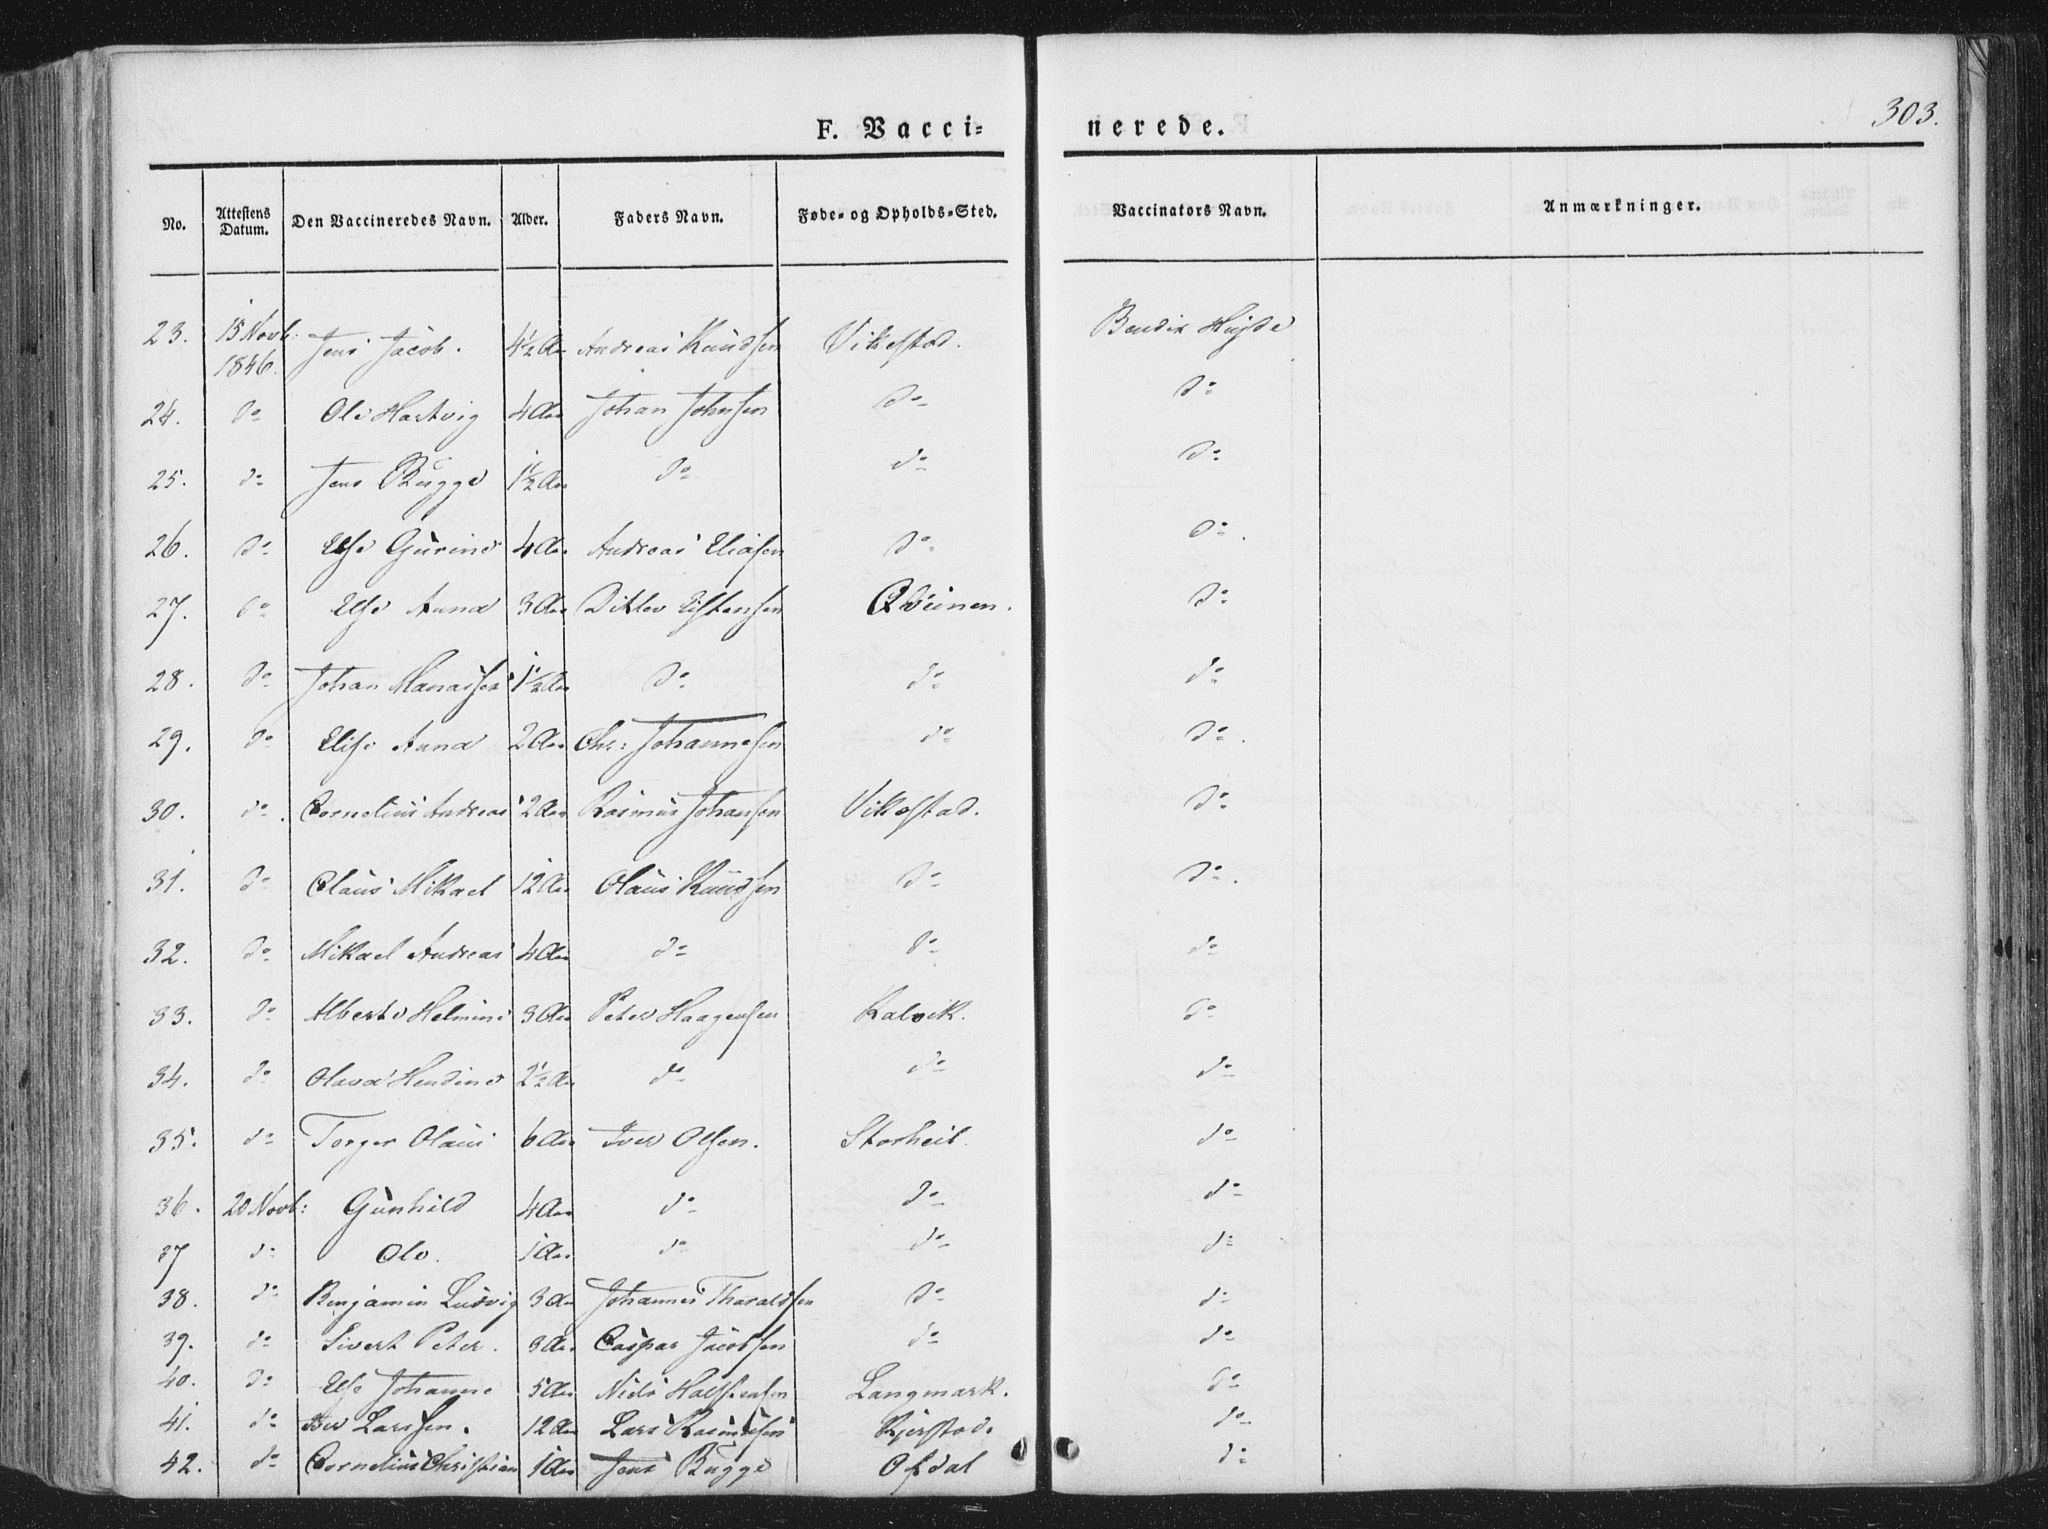 303.
F. Vacci= nerede.
No. Attestens Datum. Den Vaccineredes Navn. Alder. Faders Navn. Føde- og Opholds-Sted. Vaccinators Navn. Anmærkninger.
23. 15 Novb: 1846. Jens Jacob. 4½ Aar Andreas Knudsen Vikestad. Bendix
24. do Ole Hartvig 4 Aar Johan Johnsen do do
25. do Jens Bugge 1½ Aar do do do
26. do Else Gurine 4 Aar Andreas Eliasen do do.
27. do Else Anna 3 Aar Ditlev do
28. do Johan Manasses 1½ Aar do do do
29. do Elise Anna 2 Aar Chr: Johannesen do do.
30. do. Cornelius Andreas 2 Aar Rasmus Johansen Vikestad. do
31. do Claus Mikael 12 Aar Olaus Knudsen do do.
32. do Mikael Andreas 4 Aar do do do
33. do Alberte Helmine 3 Aar Peter Haagensen Kalvik. do
34. do Olava 2½ Aar do do do
35. do Torger Olaus 6 Aar Iver Olsen. Storheil. do
36. 20 Novb: Gunhild 4 Aar do do do
37 do Ole. 1 Aar do do do
38. do Benjamin Ludvig 3 Aar Johannes Tharaldsen do do
39. do Sivert Peter. 3 Aar Caspar Jacobsen do do
40. do Else Johanne 5 Aar Niels Langmark. do
41. do Larssen. 12 Aar Lars Rasmussen do
42. do Cornelius Christian 1 Aar Jens Bugge Ofdal do